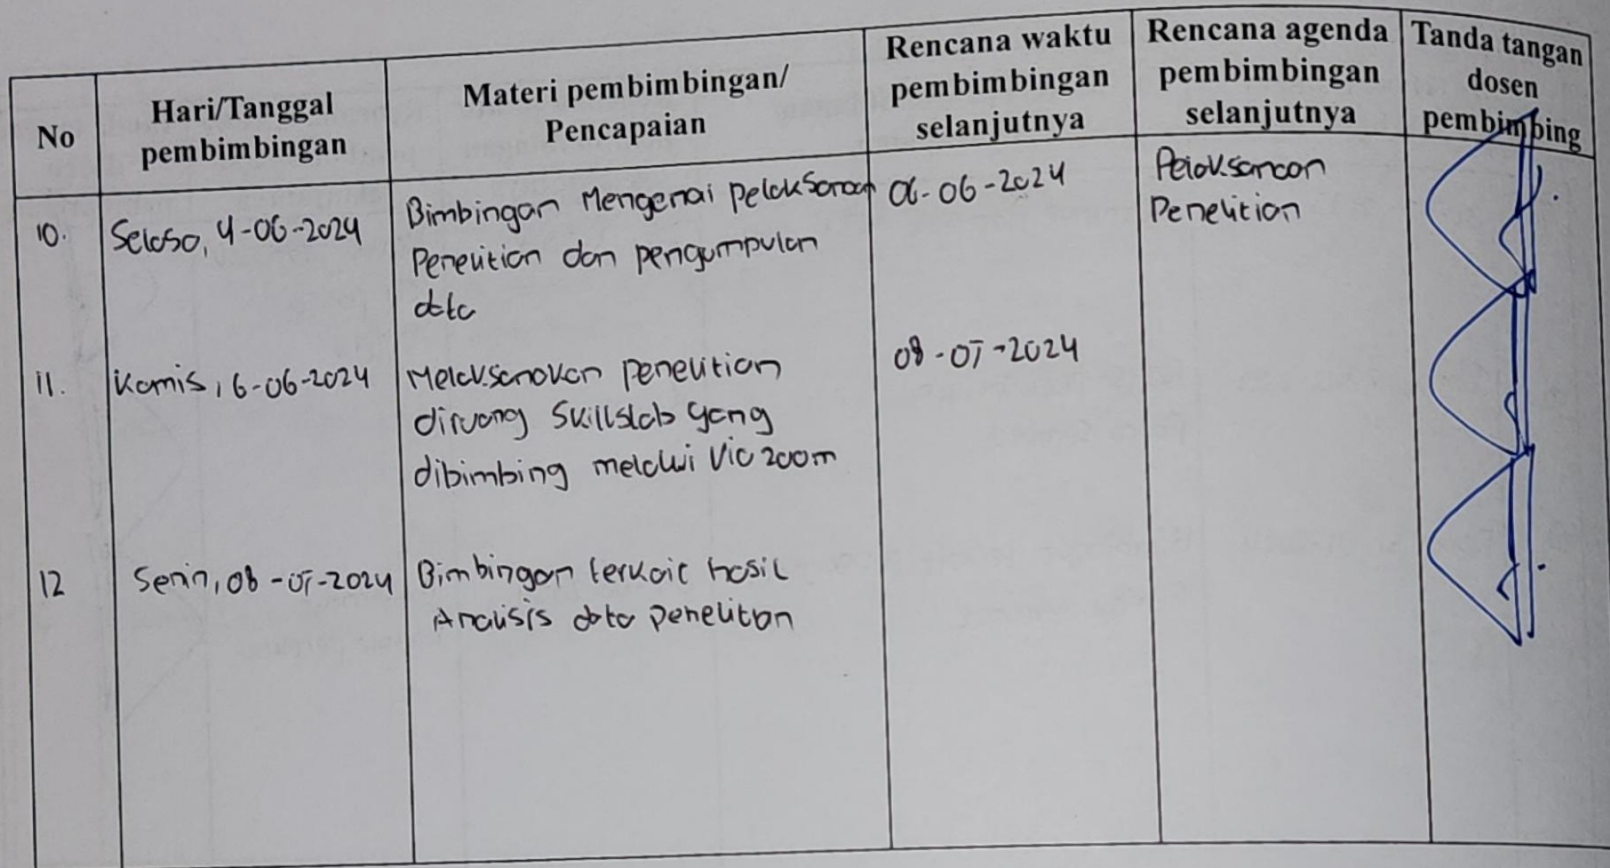 No
Hari/Tanggal
pembimbingan
Materi pembimbingan/
Pencapaian
Rencana waktu
pembimbingan
selanjutnya
Rencana agenda
pembimbingan
selanjutnya
Tanda tangan
dosen
pembimbing
10.
Selasa, 4-06-2024
Bimbingan Mengenai pelaksanaan
Penelitian dan pengumpulan
data
06-06-2024
Pelaksanaan
Penelitian
11.
Kamis, 6-06-2024
Melaksanakan penelitian
diruang Skillslab yang
dibimbing melalui Via zoom
08-07-2024
12
Senin, 08-07-2024
Bimbingan terkait hasil
Analisis data penelitian